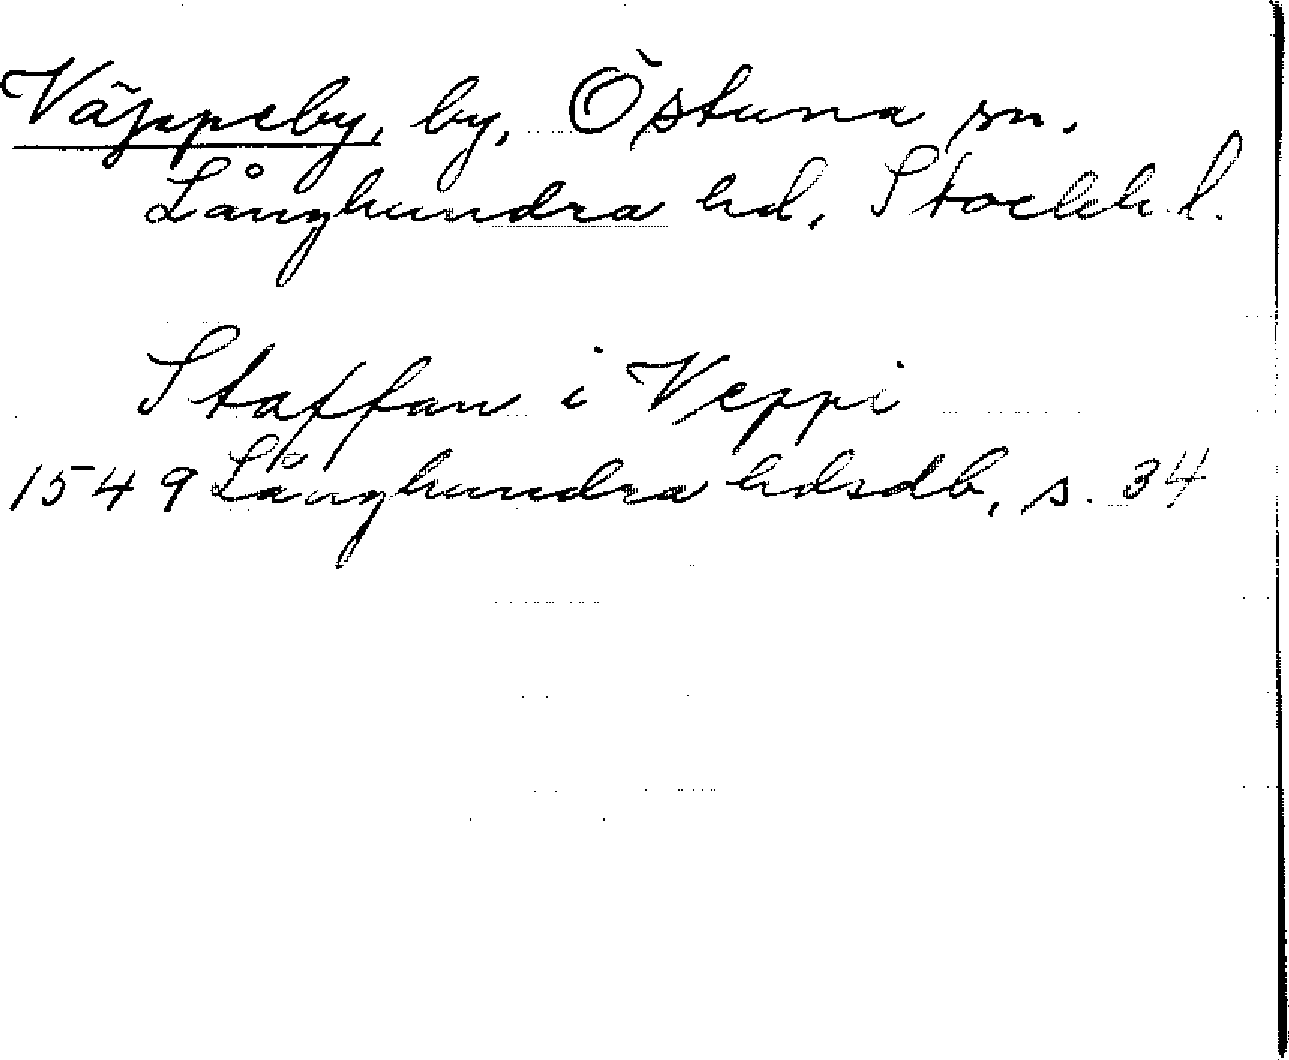 Väppeby, by, Östuna sn.
Långhundra hd, Stockh. l.
Staffan i Veppi
1549 Långhundra hdsdb, s. 34